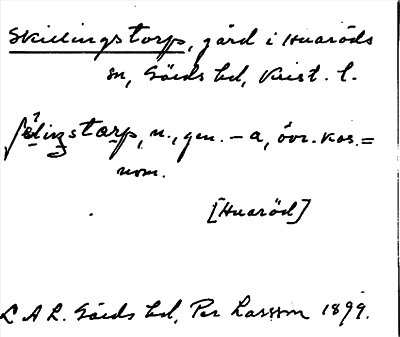 Skillingstorp, gård i Huaröds
sn, Gärds hd, Krist. l.
n., gen. – a, övr. kas. =
nom.
[Huaröd]
L A L. Gärds hd, Per Larsson 1899.